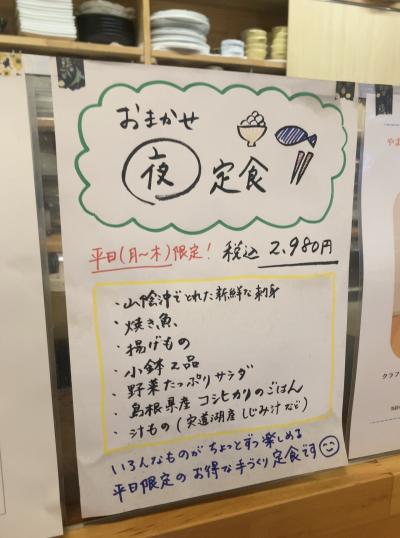 おまかせ
夜 定食
平日(月～木)限定! 税込 2,980円
・山陰沖でとれた新鮮な刺身
・焼き魚、
・揚げもの
・小鉢2品
・野菜たっぷりサラダ
・島根県産 コシヒカリのごはん
・汁もの (宍道湖産しじみ汁など)
いろんなものがちょっとずつ楽しめる
平日限定の お得な手づくり定食です
やま
クラフ